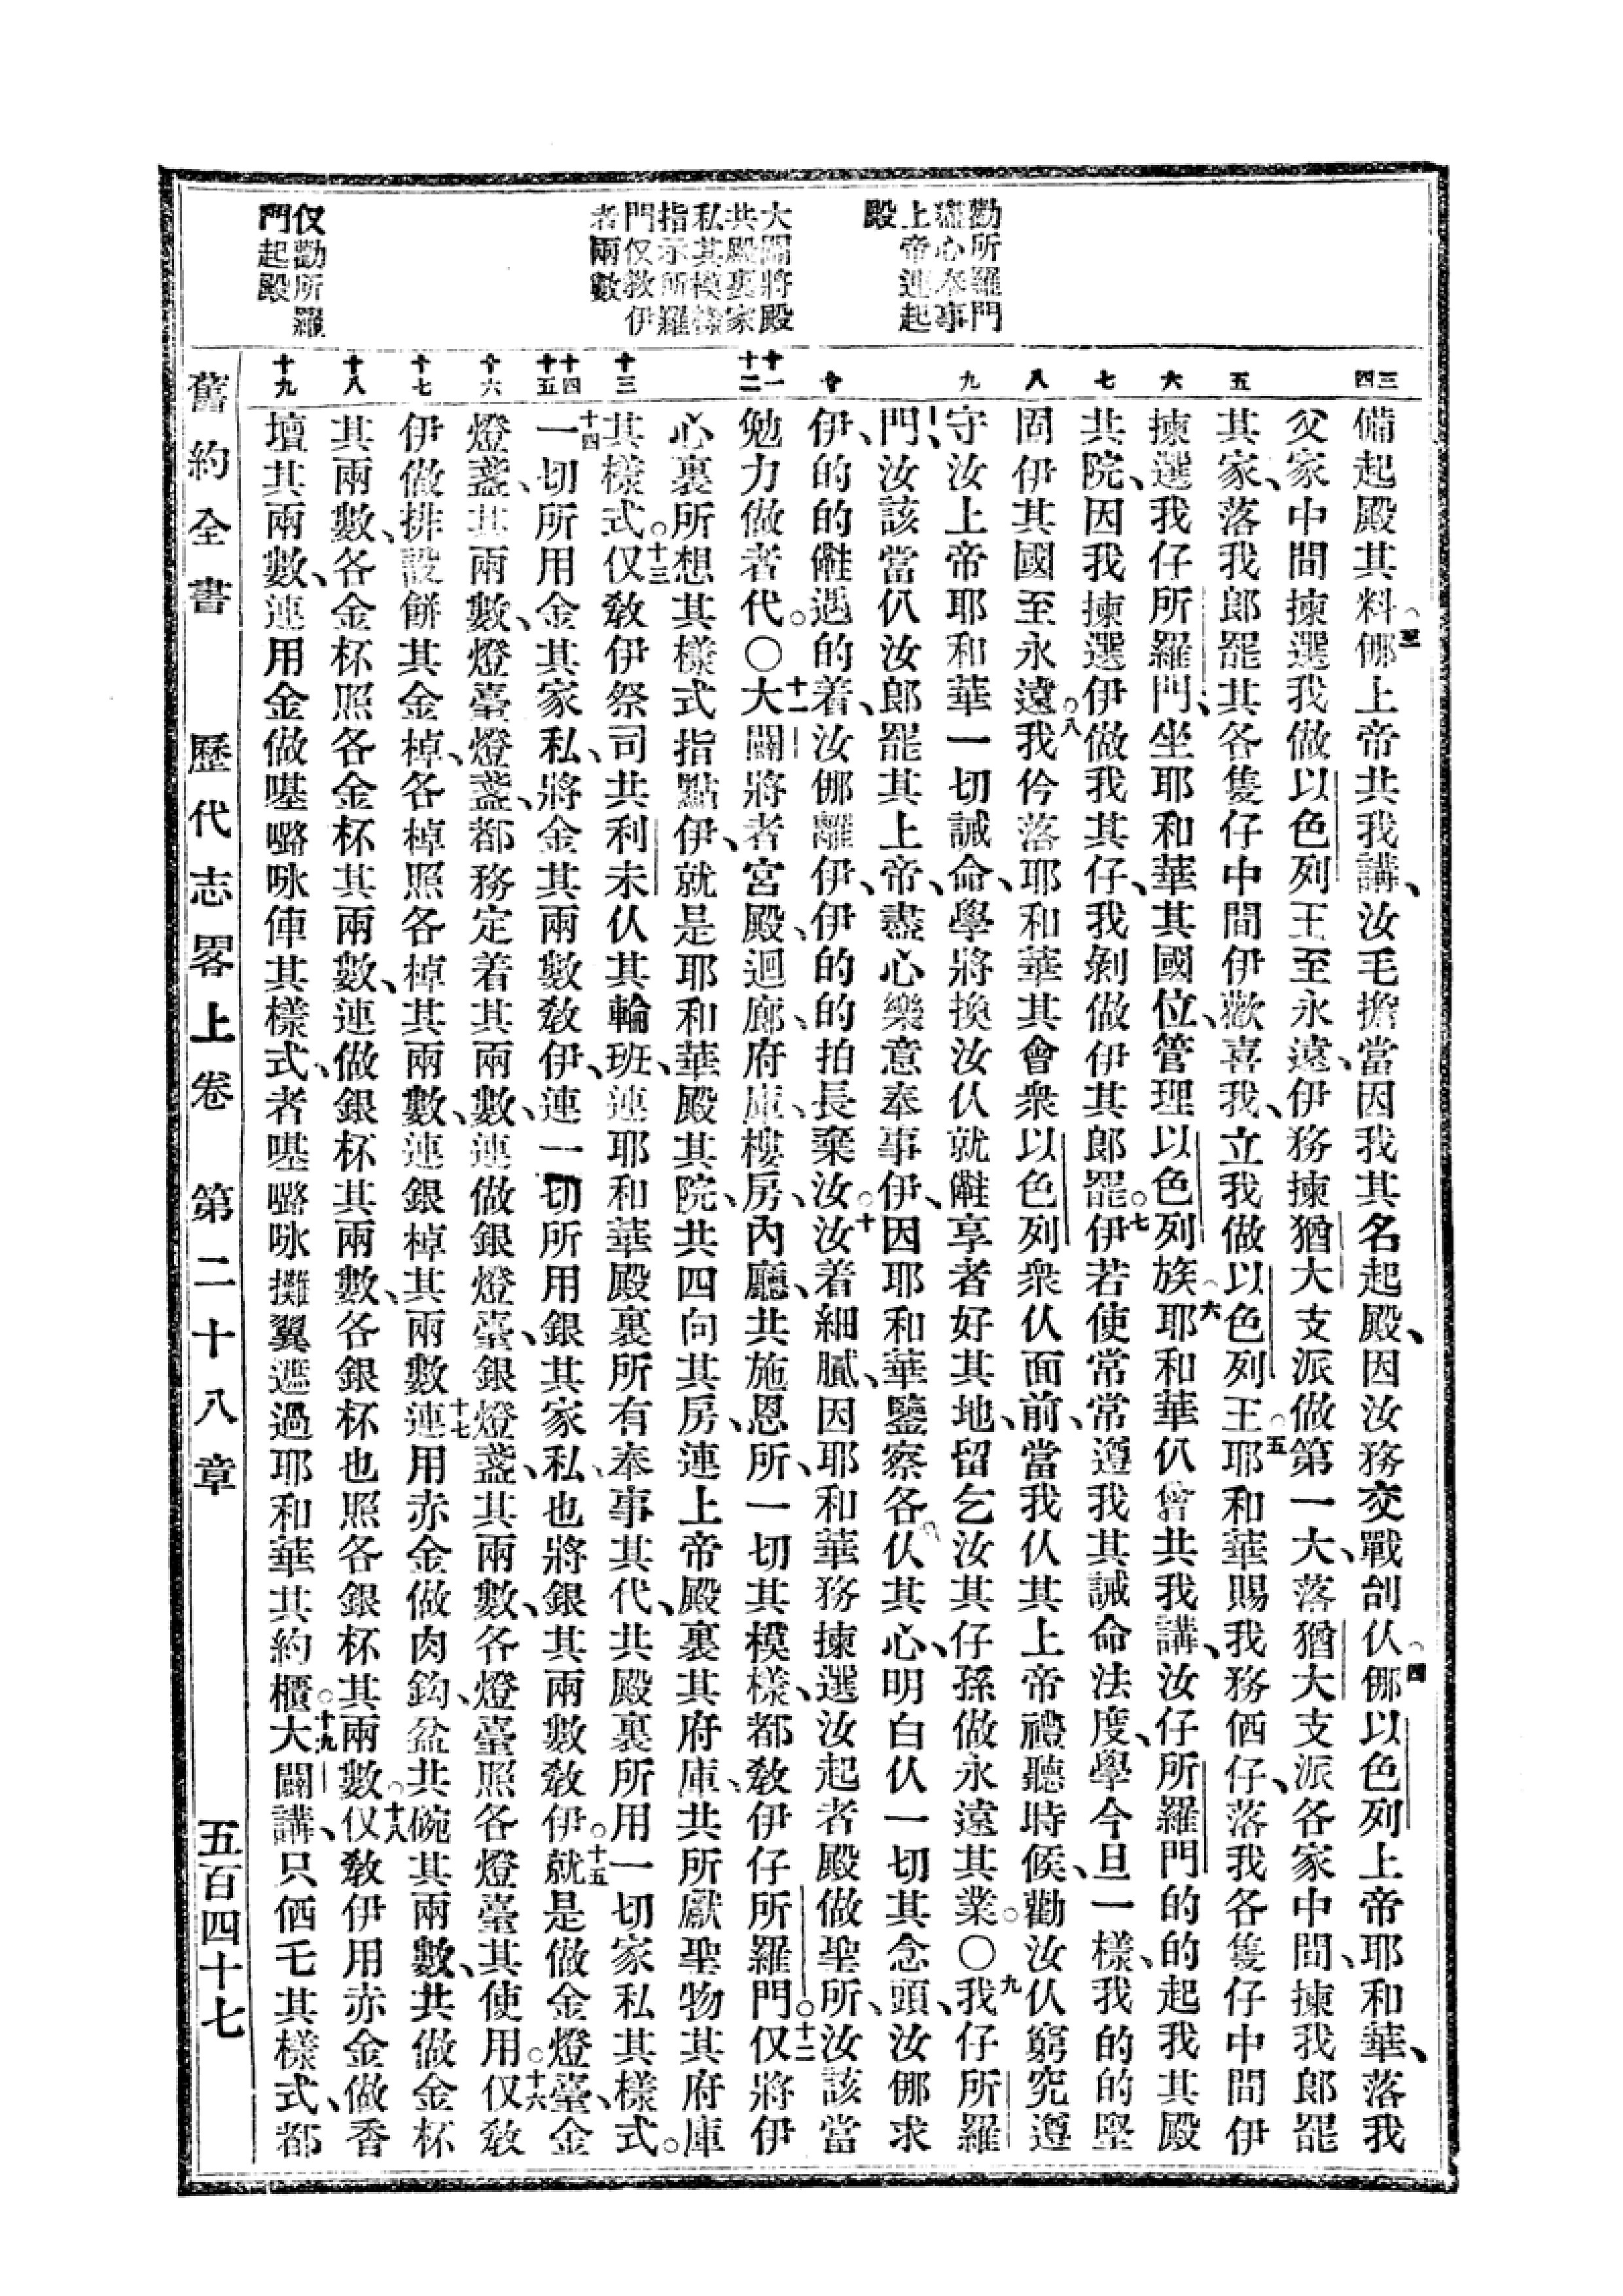 勸所羅門
殫心奉事
上帝連起
殿
大闢將殿
共殿裏家
私其模樣
指示所羅
門仅教伊
者兩數
仅勸所羅
門起殿
三
四
五
六
七
八
九
十
十一
十二
十三
十四
十五
十六
十七
十八
十九
備起殿其料三哪上帝共我講、汝毛擔當因我其名起殿、因汝務交戰刣仈四哪以色列上帝耶和華、落我
父家中間揀選我做以色列王至永遠、伊務揀猶大支派做第一大、落猶大支派各家中間、揀我郎罷
其家、落我郎罷其各隻仔中間伊歡喜我、立我做以色列王五耶和華賜我務俖仔、落我各隻仔中間伊
揀選我仔所羅門、坐耶和華其國位、管理以色列族六耶和華仈會共我講、汝仔所羅門的的起我其殿
共院、因我揀選伊做我其仔、我剝做伊其郎罷。七伊若使常常遵我其誡命法度、學今旦一樣、我的的堅
固伊其國至永遠。八我仱落耶和華其會衆以色列衆仈面前、當我仈其上帝禮聽時候、勸汝仈窮究遵
守汝上帝耶和華一切誡命、學將換汝仈就𠕇享者好其地、留乞汝其仔孫做永遠其業。〇九我仔所羅
門、汝該當仈汝郎罷其上帝、盡心樂意奉事伊、因耶和華鑒察各仈其心、明白仈一切其念頭、汝哪求
伊、的的𠕇遇的着、汝哪離伊、伊的的拍長棄汝。十汝着細膩、因耶和華務揀選汝起者殿做聖所、汝該當
勉力做者代。〇十一大闢將者宮殿、迴廊、府庫、樓房、內廳、共施恩所、一切其模樣、都教伊仔所羅門。十二仅將伊
心裏所想其樣式指點伊、就是耶和華殿其院、共四向其房、連上帝殿裏其府庫、共所獻聖物其府庫
其樣式。十三仅教伊祭司共利未仈其輪班、連耶和華殿裏所有奉事其代、共殿裏所用一切家私其樣式。
十四一切所用金其家私、將金其兩數教伊、連一切所用銀其家私、也將銀其兩數教伊。十五就是做金燈臺、金
燈盞、其兩數、燈臺燈盞、都務定着其兩數、連做銀燈臺、銀燈盞、其兩數、各燈臺照各燈臺其使用。十六仅教
伊做排設餅其金棹、各棹照各棹其兩數、連銀棹其兩數十七連用赤金做肉鈎、盆共碗其兩數、共做金杯
其兩數、各金杯照各金杯其兩數、連做銀杯其兩數、各銀杯也照各銀杯其兩數。十八仅教伊用赤金做香
壇其兩數、連用金做𠸄嚕咏俥其樣式、者𠸄嚕咏攤翼遮過耶和華其約櫃。十九大闢講、只俖乇其樣式、都
舊約全書　歷代志畧上卷　第二十八章　五百四十七